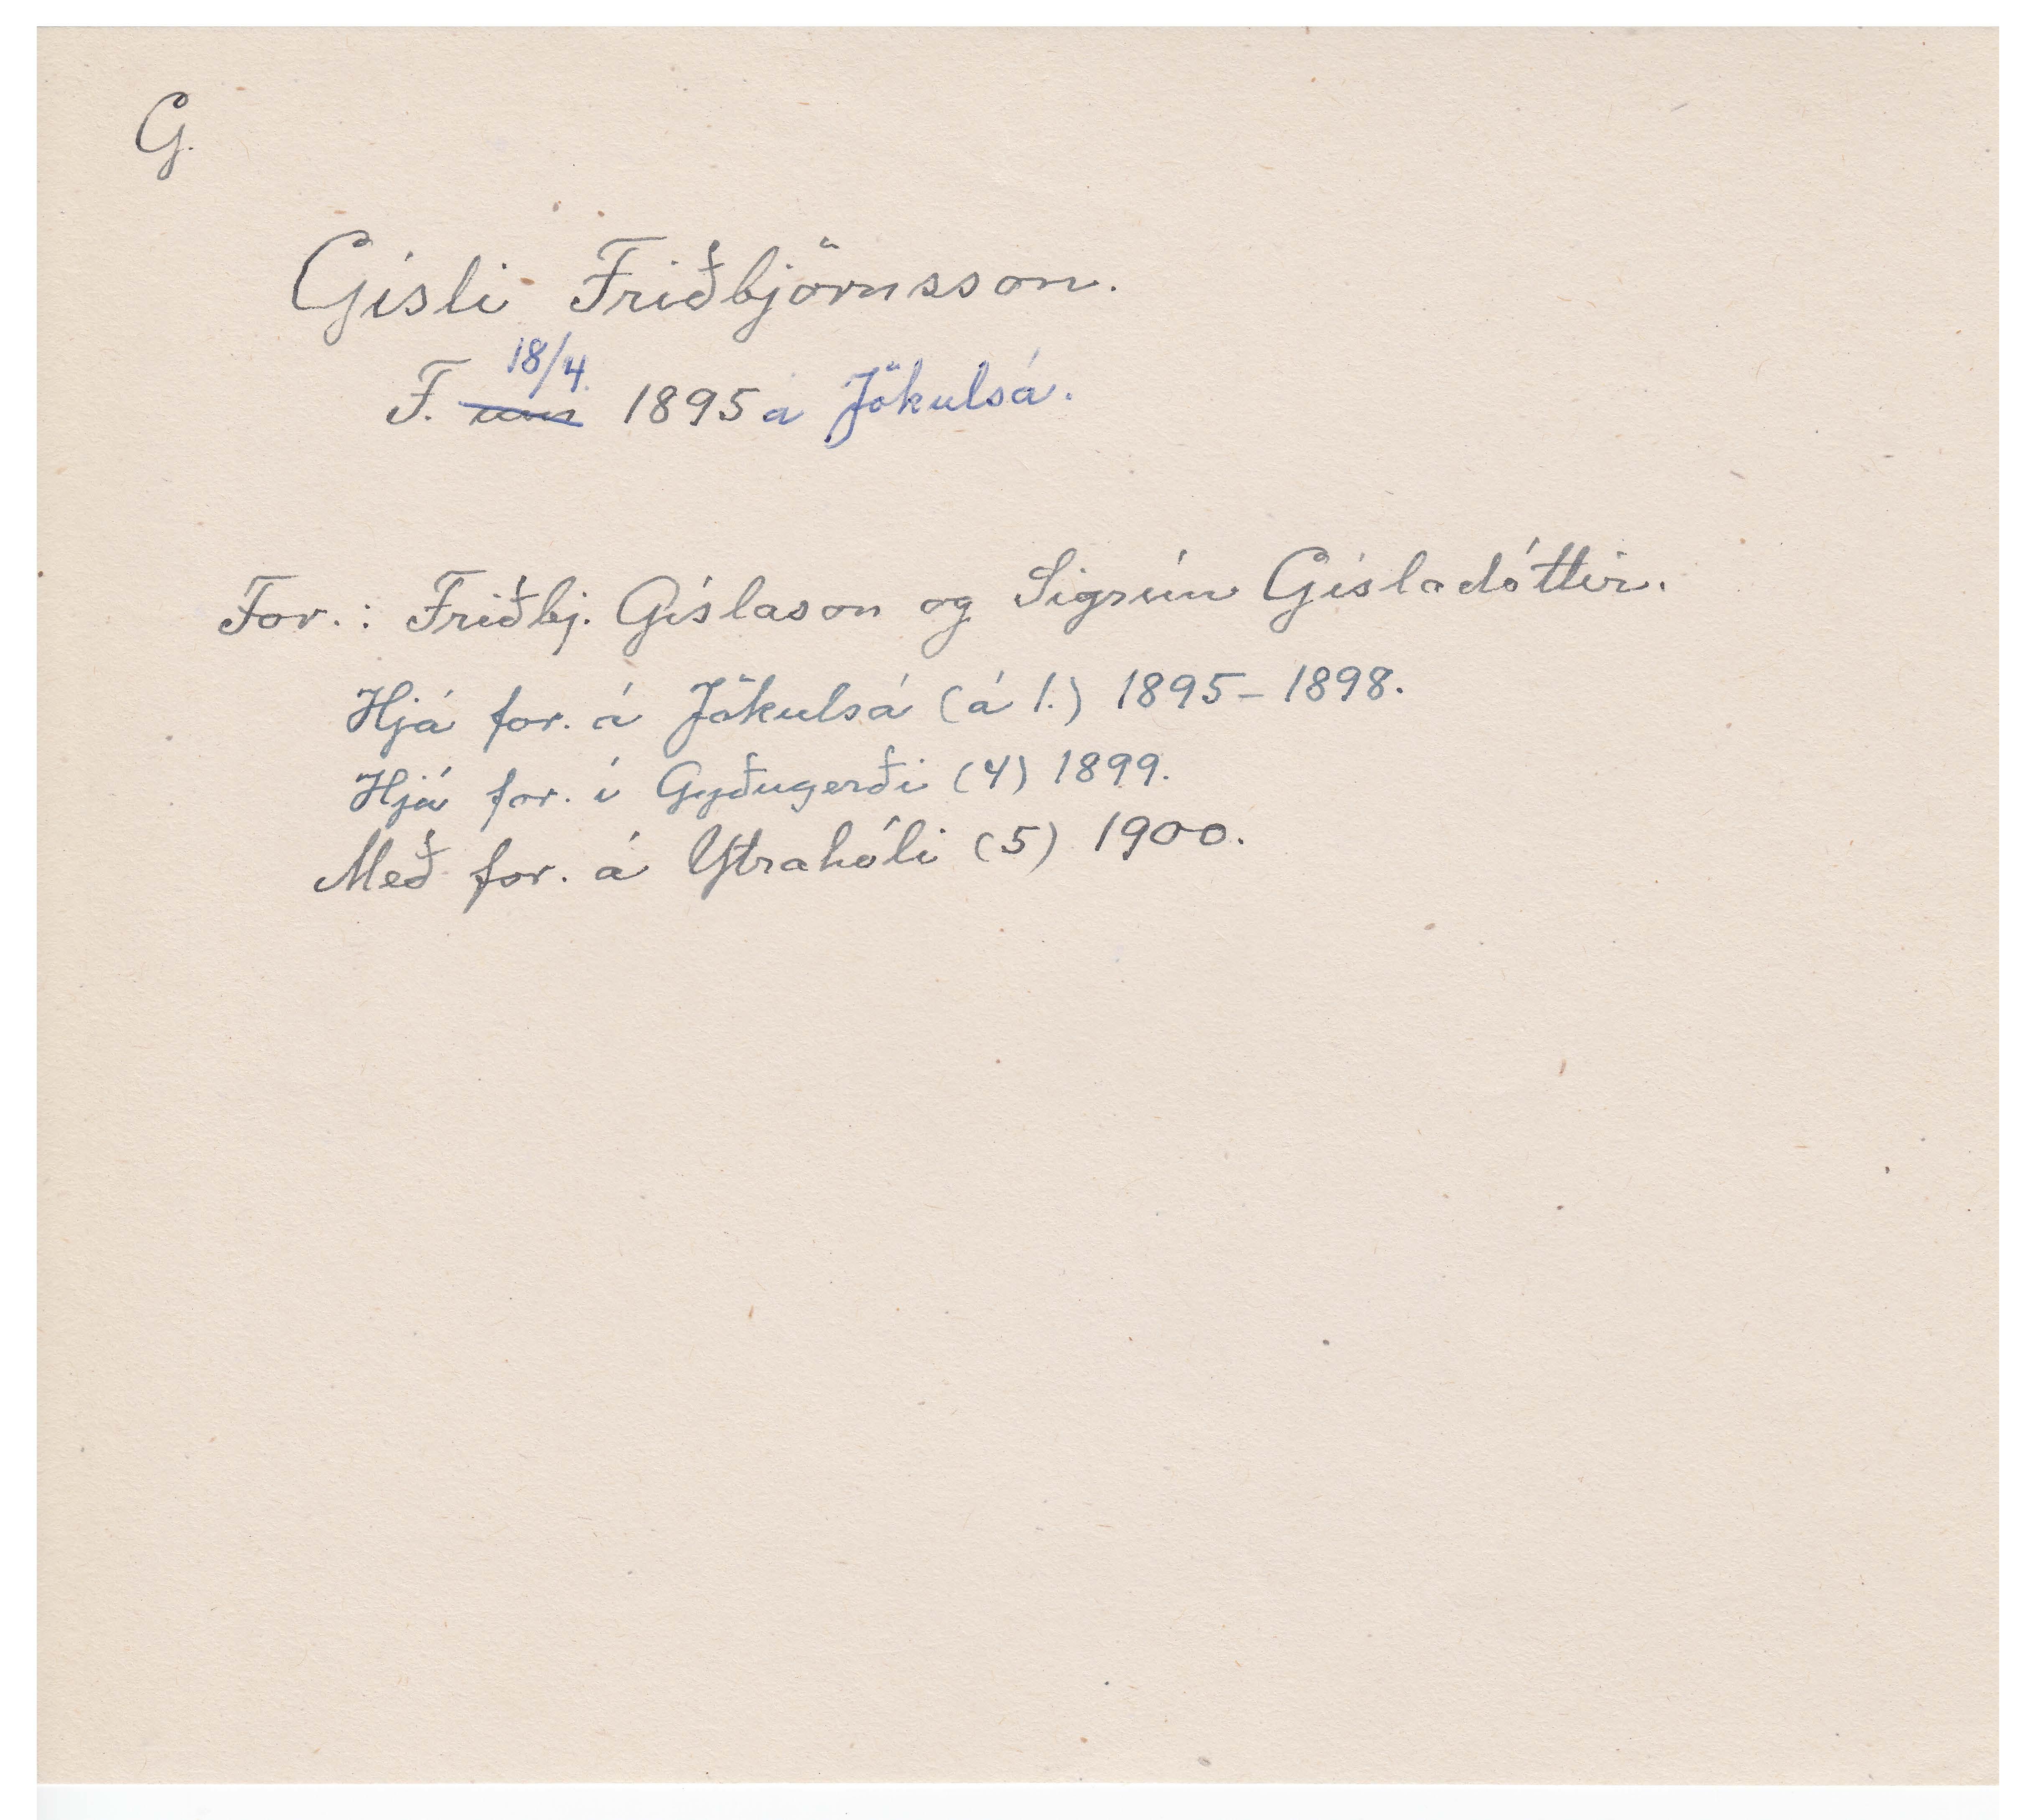 G.
Gísli Friðbjörnsson.
18/4.
F. um 1895 á Jökulsá.
For.: Friðbj. Gíslason og Sigrún Gísladóttir.
Hjá for. á Jökulsá (á 1.) 1895-1898.
Hjá for. í Gyðugerði (4) 1899.
Með for. á Ytrahóli (5) 1900.